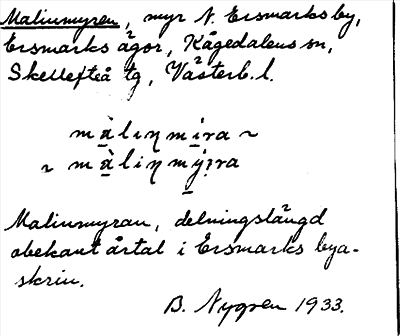 Malinmyren, myr N. Ersmarks by,
Ersmarks ägor, Kågedalens sn,
Skellefteå tg, Västerb. l.
màlıŋmíra ~
~ màliŋmýra
Malinmyran, delningslängd
obekant årtal i Ersmarks bya-
skrin.
B. Nygren 1933.